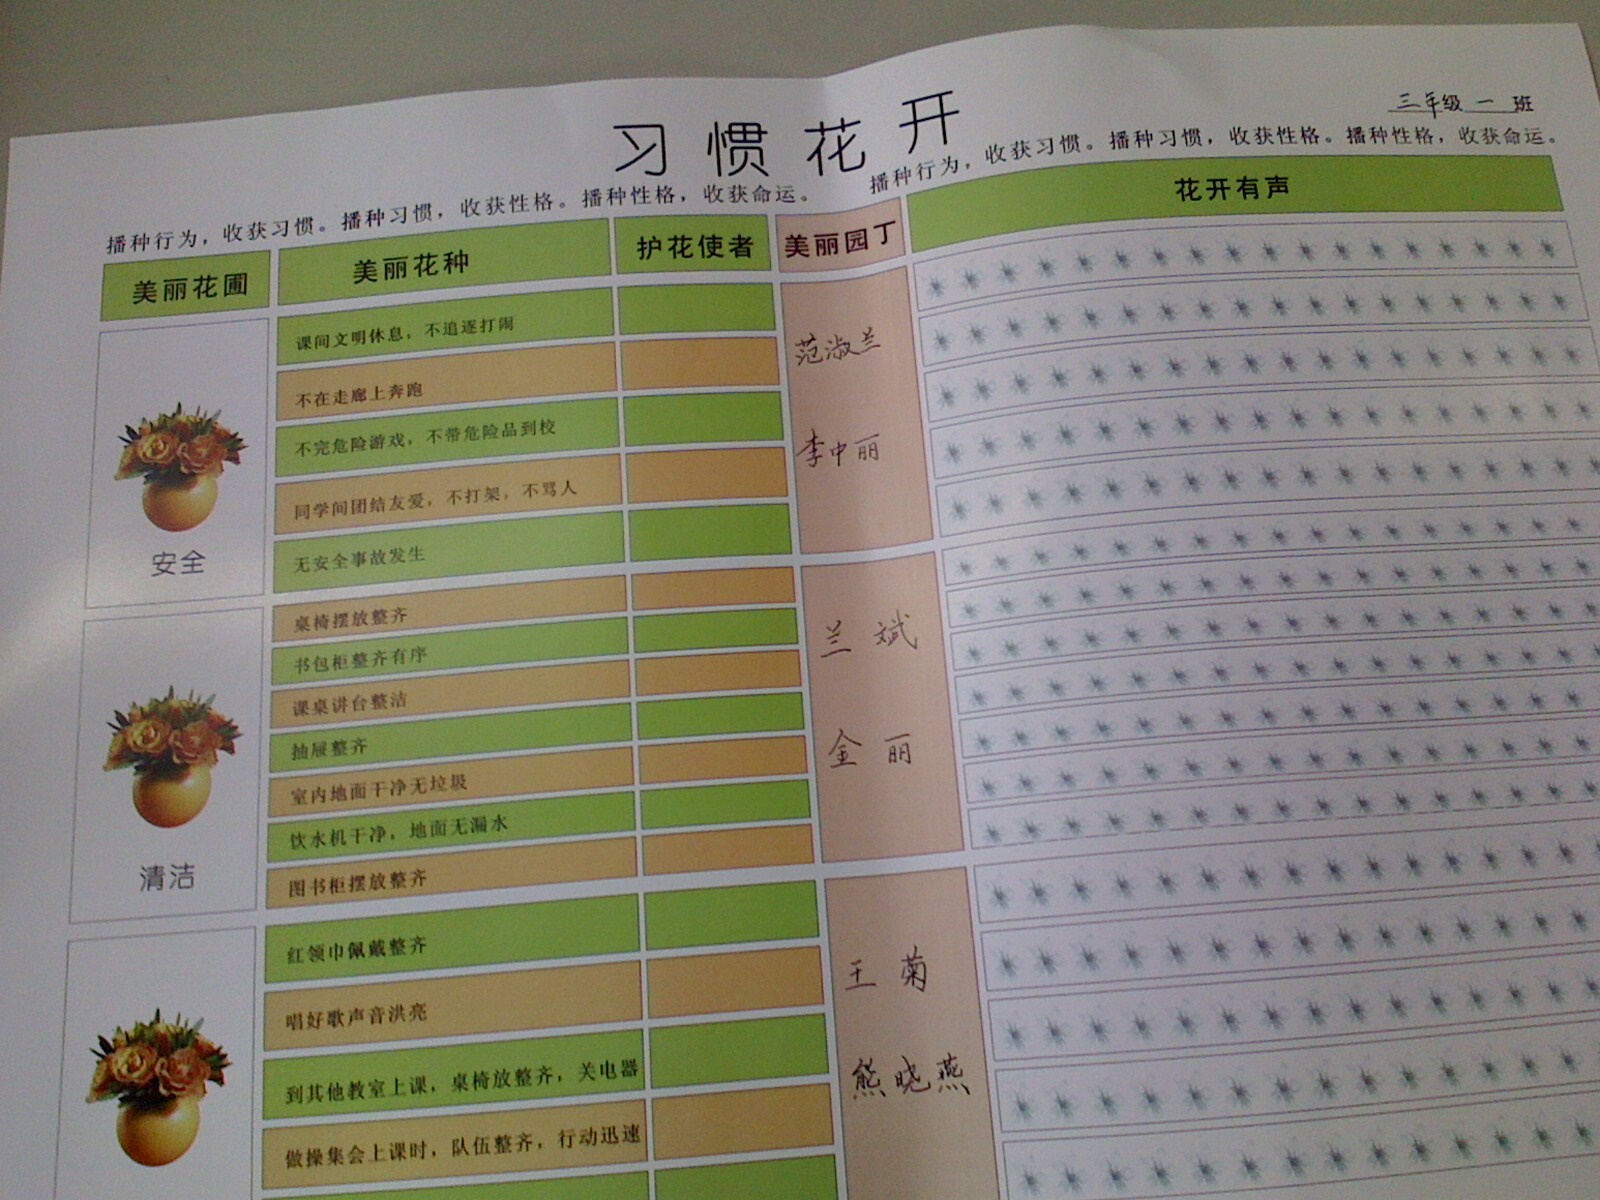 三年级 一 班
习惯花开
播种行为，收获习惯。播种习惯，收获性格。播种性格，收获命运。 播种行为，收获习惯。播种习惯，收获性格。播种性格，收获命运。
美丽花圃 美丽花种 护花使者 美丽园丁 花开有声
课间文明休息，不追逐打闹
不在走廊上奔跑
范淑兰
不完危险游戏，不带危险品到校
李中丽
同学间团结友爱，不打架，不骂人
无安全事故发生
安全
桌椅摆放整齐
书包柜整齐有序
兰斌
课桌讲台整洁
抽屉整齐
金丽
室内地面干净无垃圾
饮水机干净，地面无漏水
图书柜摆放整齐
清洁
红领巾佩戴整齐
王菊
唱好歌声音洪亮
到其他教室上课，桌椅放整齐，关电器
熊晓燕
做操集会上课时，队伍整齐，行动迅速